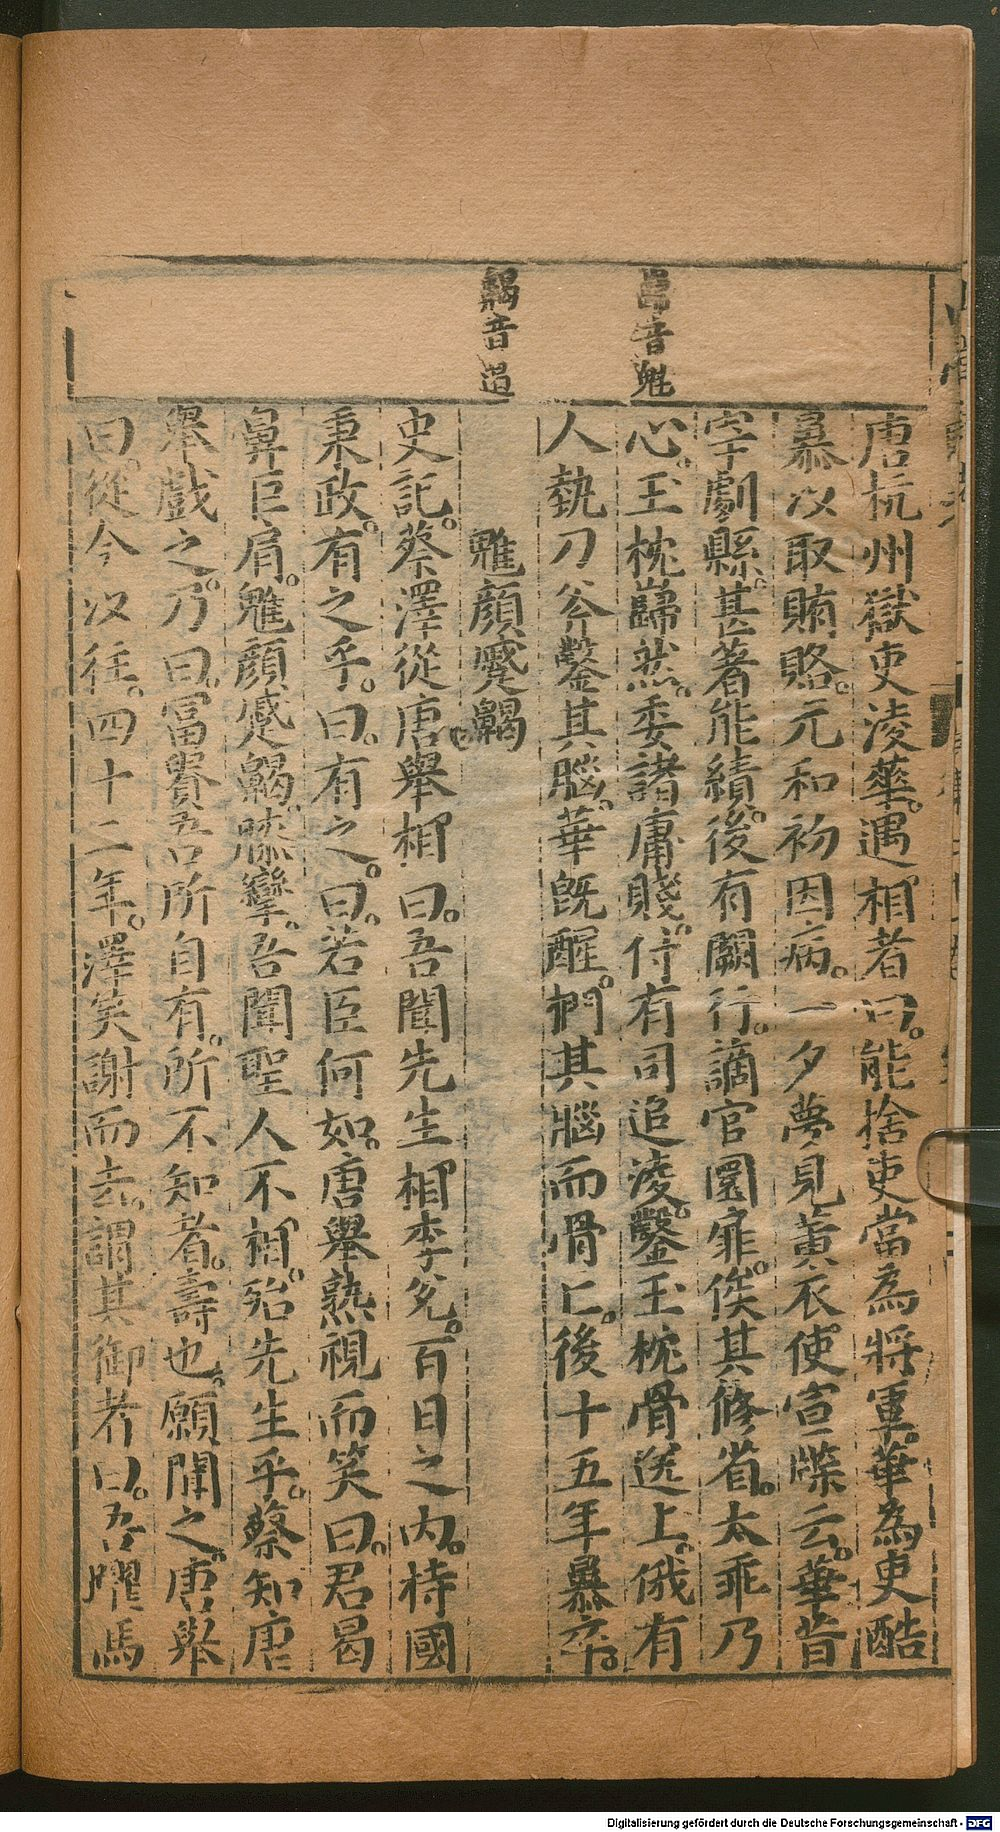 巋音魁
齃音遏
唐杭州獄吏淩華。遇相者曰。能捨吏當為將軍。華為吏酷
暴以取賄賂。元和初因病。一夕夢見黃衣使宣牒云。華昔
宰劇縣。甚著能績。後有闕行。謫官圜扉。俟其修省。太乖乃
心。玉枕巋然。委諸庸賤。付有司追淩。鑿玉枕骨送上。俄有
人執刀斧鑿其腦。華既醒。捫其腦而骨亡。後十五年暴卒。
魋顏蹙齃
史記。蔡澤從唐舉相。曰。吾聞先生相李兌。百日之內。持國
秉政。有之乎。曰。有之。曰。若臣何如。唐舉熟視而笑曰。君曷
鼻巨肩。魋顏蹙齃。膝攣。吾聞聖人不相。殆先生乎。蔡知唐
舉戲之。乃曰。富貴吾所自有。所不知者。壽也。願聞之。唐舉
曰。從今以往。四十二年。澤笑謝而去。謂其御者曰。吾躍馬
Digitalisierung gefördert durch die Deutsche Forschungsgemeinschaft - DFG